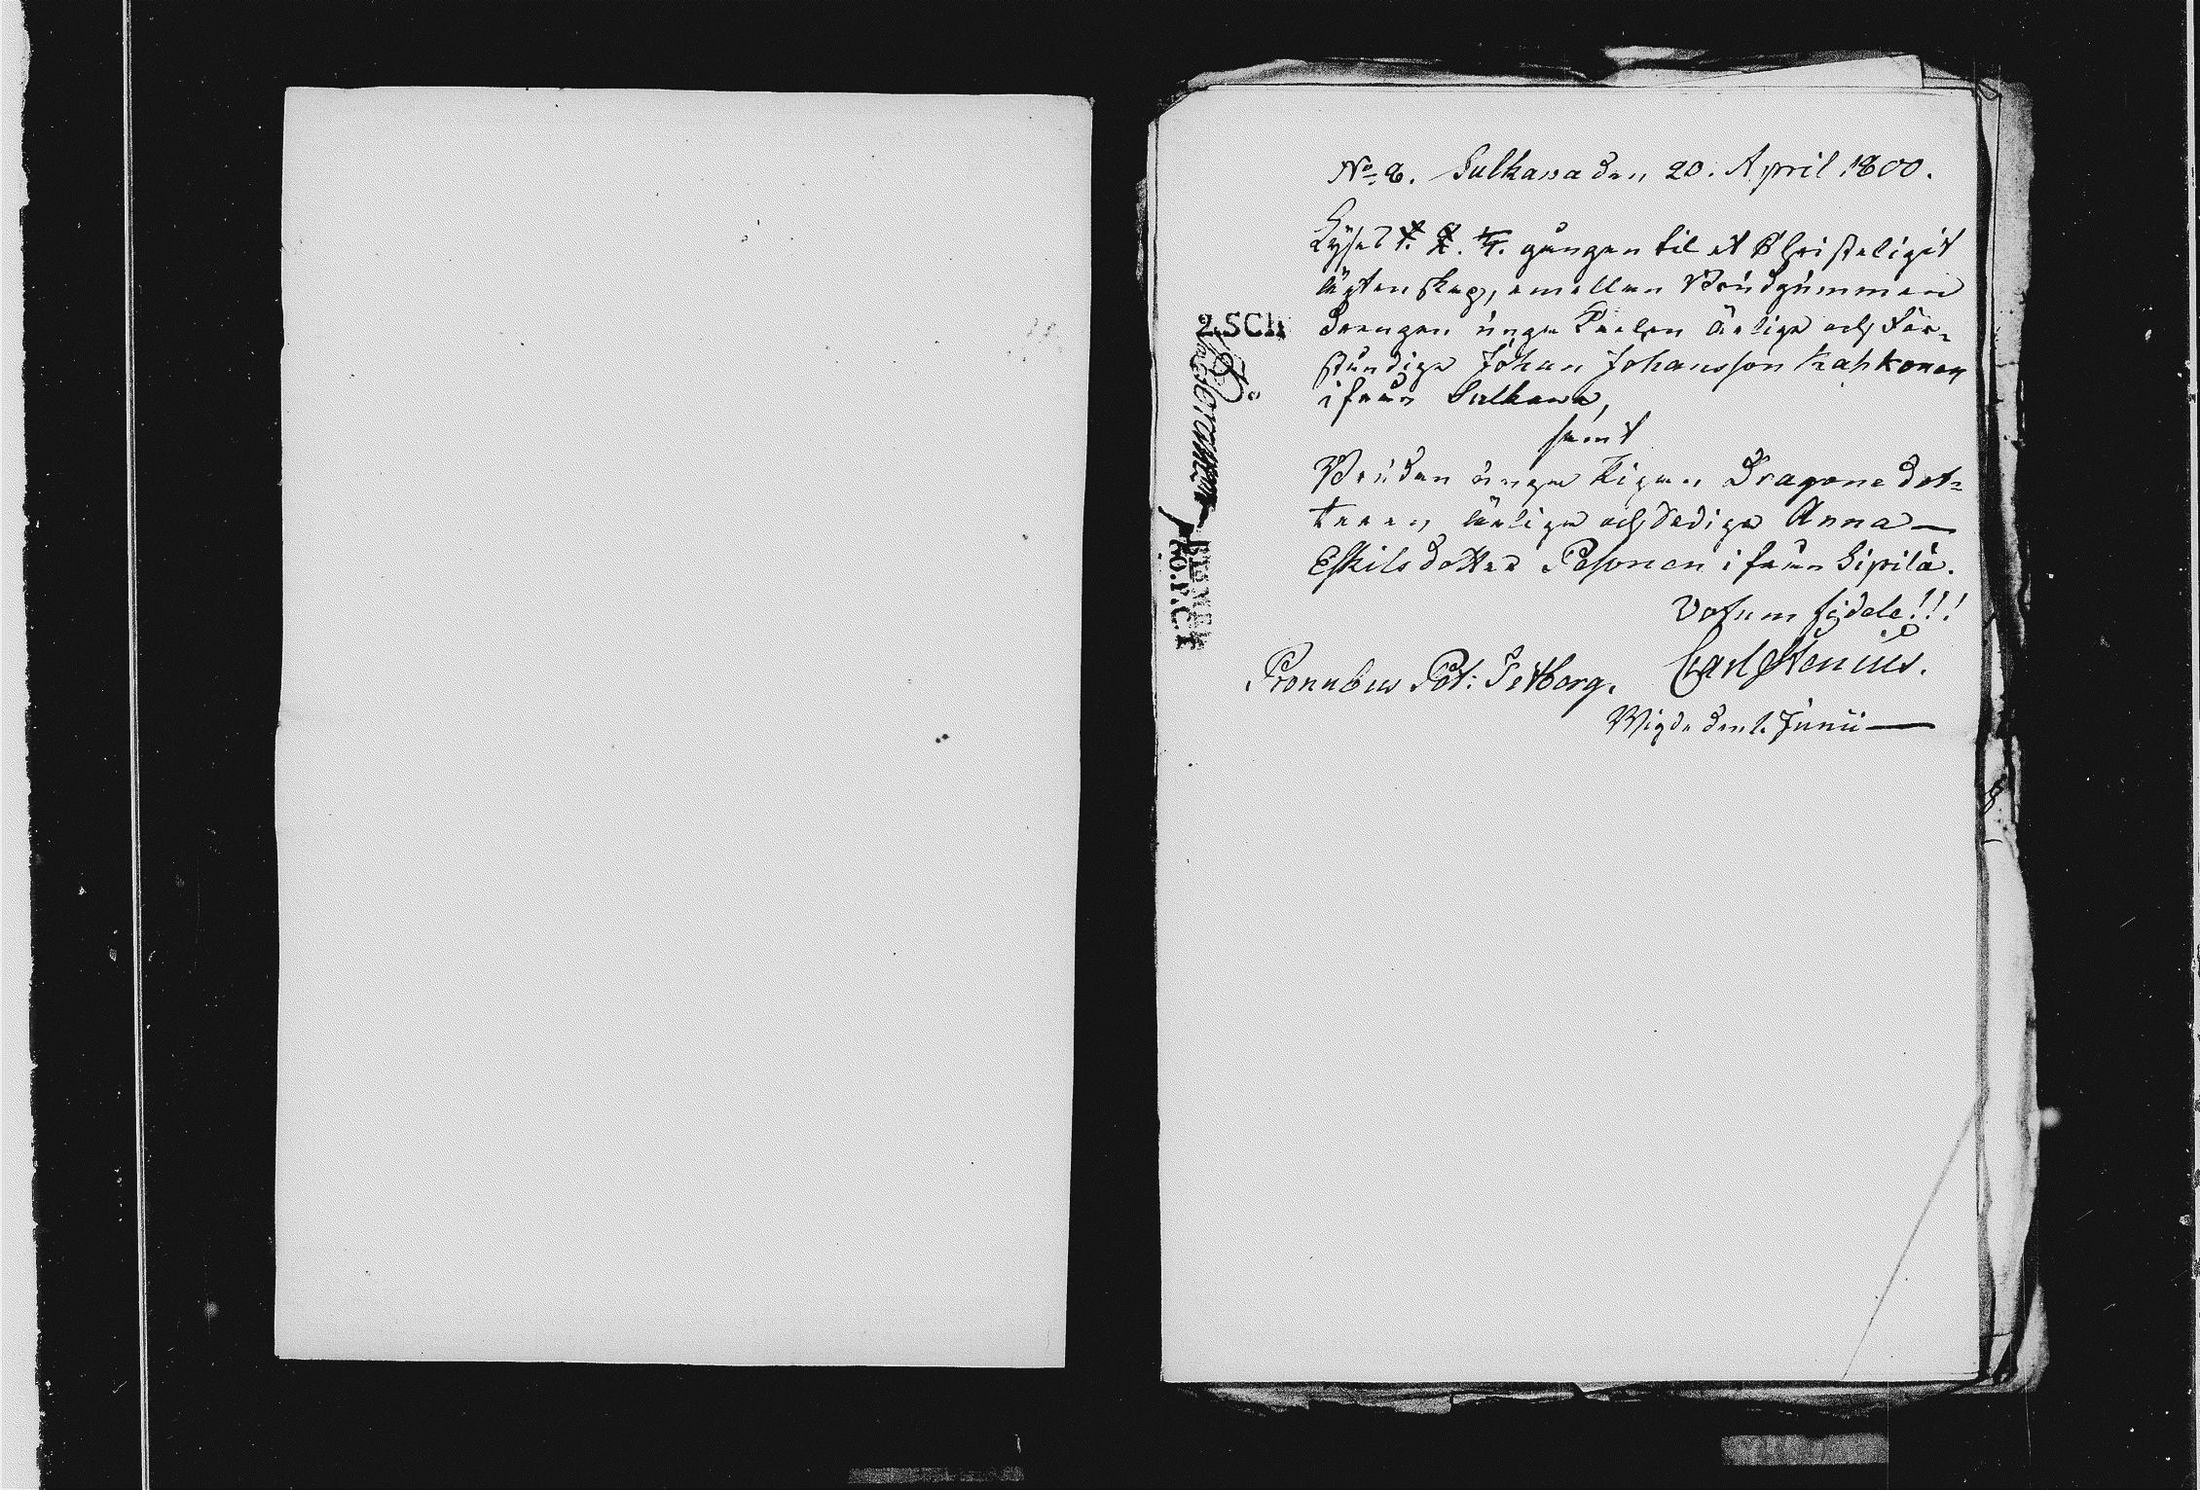 No 8. Sulkava den 20. April 1800.
Lyses 1. 2. 3. gången til et Christeligit
ägtenskap, emellan Brudgummen
Drengen unga Karlen ärlige och för-
ståndige Johan Johansson Kahkonen
ifrån Sulkava,
samt
Bruden unga Pigan Dragone dot-
teren, ärliga och sediga Anna
Eskilsdotter Pesonen ifrån Sipilä.
Votum fidele!!!
Carl Stenius.
Pronubus Pet: Tetberg.
Wigde den 1. Junii
2.SCH